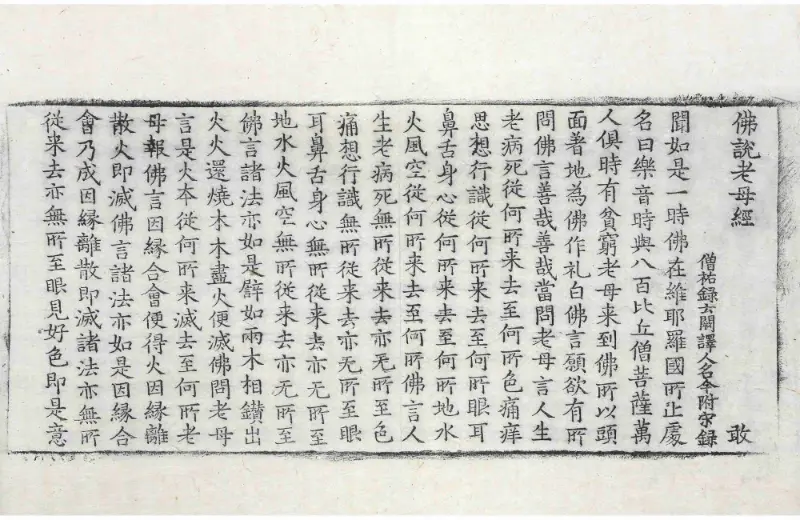 佛說老母經 敢
僧祐録云闕譯人名今附宋録
聞如是一時佛在維耶羅國所止處
名曰樂音時與八百比丘僧菩薩萬
人俱時有貧窮老母来到佛所以頭
面著地為佛作礼白佛言願欲有所
問佛言善哉善哉當問老母言人生
老病死從何所来去至何所色痛痒
思想行識從何所来去至何所眼耳
鼻舌身心從何所来去至何所地水
火風空從何所来去至何所佛言人
生老病死無所從来去亦无所至色
痛想行識無所從来去亦無所至眼
耳鼻舌身心無所從来去亦无所至
地水火風空無所從来去亦无所至
佛言諸法亦如是譬如兩木相鑽出
火火還燒木木盡火便滅佛問老母
言是火夲從何所来滅去至何所老
母報佛言因緣合會便得火因緣離
散火即滅佛言諸法亦如是因緣合
會乃成因緣離散即滅諸法亦無所
從来去亦無所至眼見好色即是意